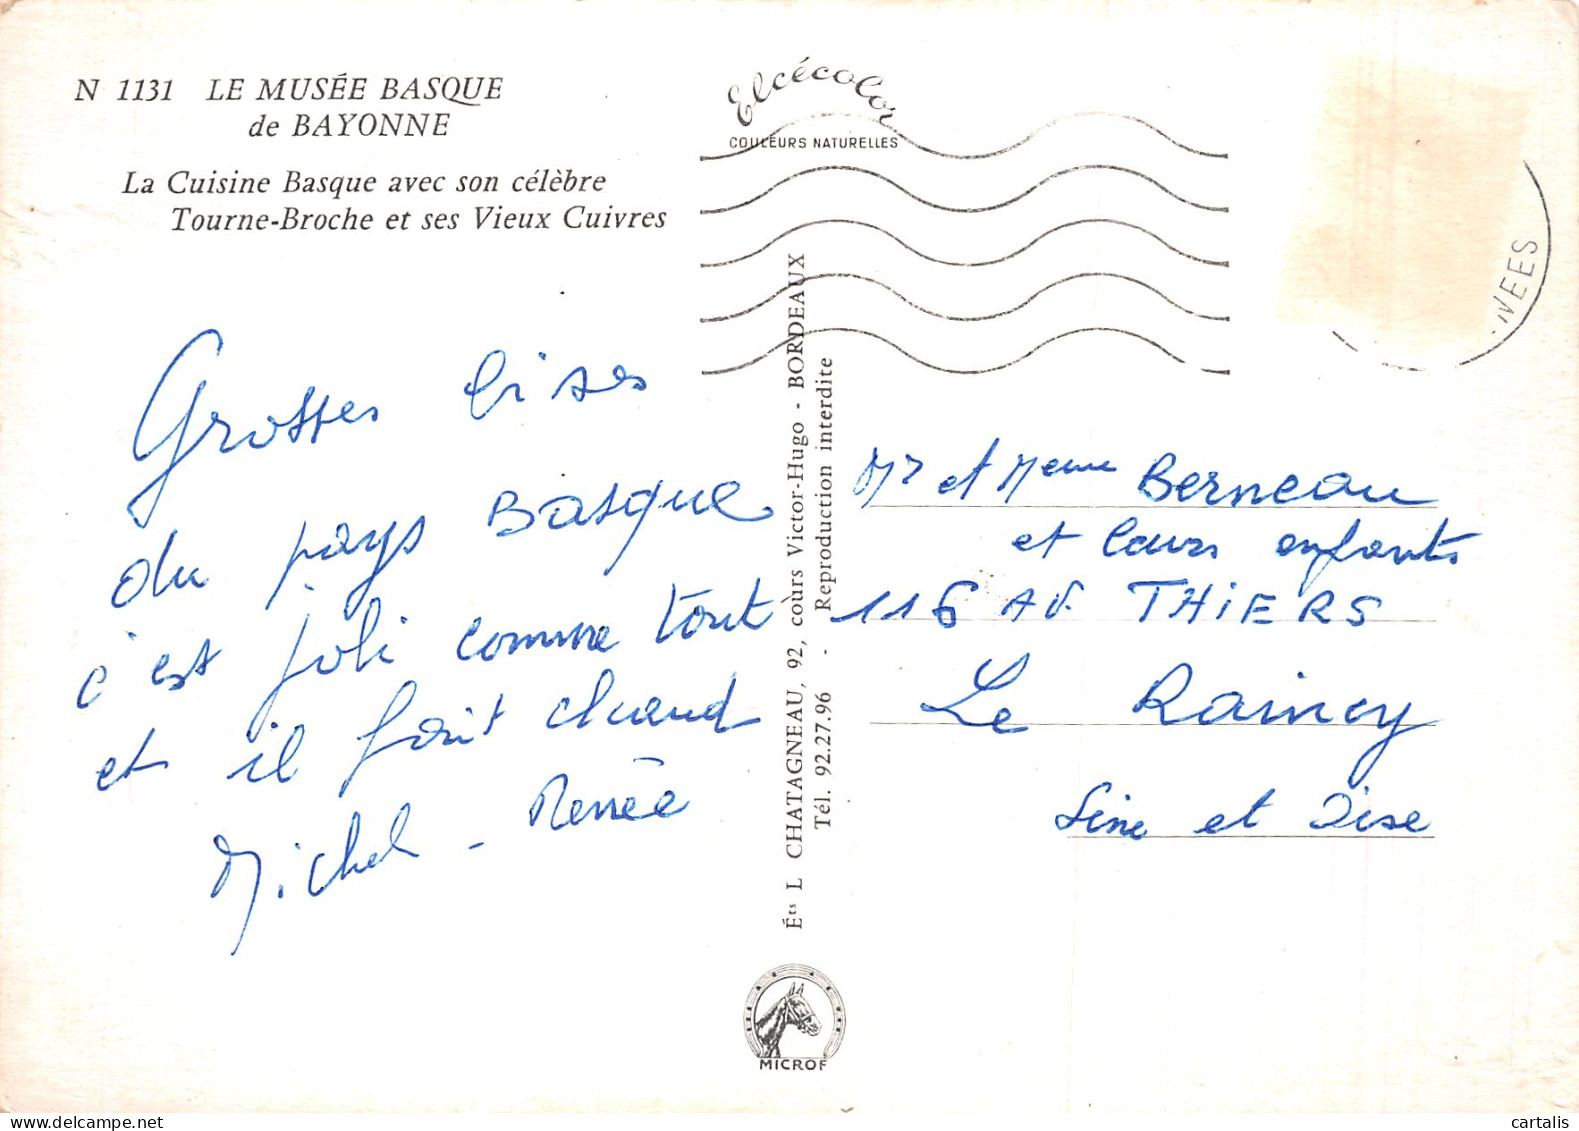 N 1131 LE MUSÉE BASQUE
de BAYONNE
La Cuisine Basque avec son célèbre
Tourne-Broche et ses Vieux Cuivres
Elcécolor
COULEURS NATURELLES
NEES
Grosses bises
du pays Basque
c'est joli comme tout
et il fait chaud
Michel - Renée
Éts L CHATAGNEAU, 92, cours Victor-Hugo - BORDEAUX
Tél. 92.27.96 - Reproduction interdite
Mr et Meme Berneau
et leurs enfants
116 AV. THIERS
Le Raincy
Seine et Oise
MICROF
cartalis
delcampe.net